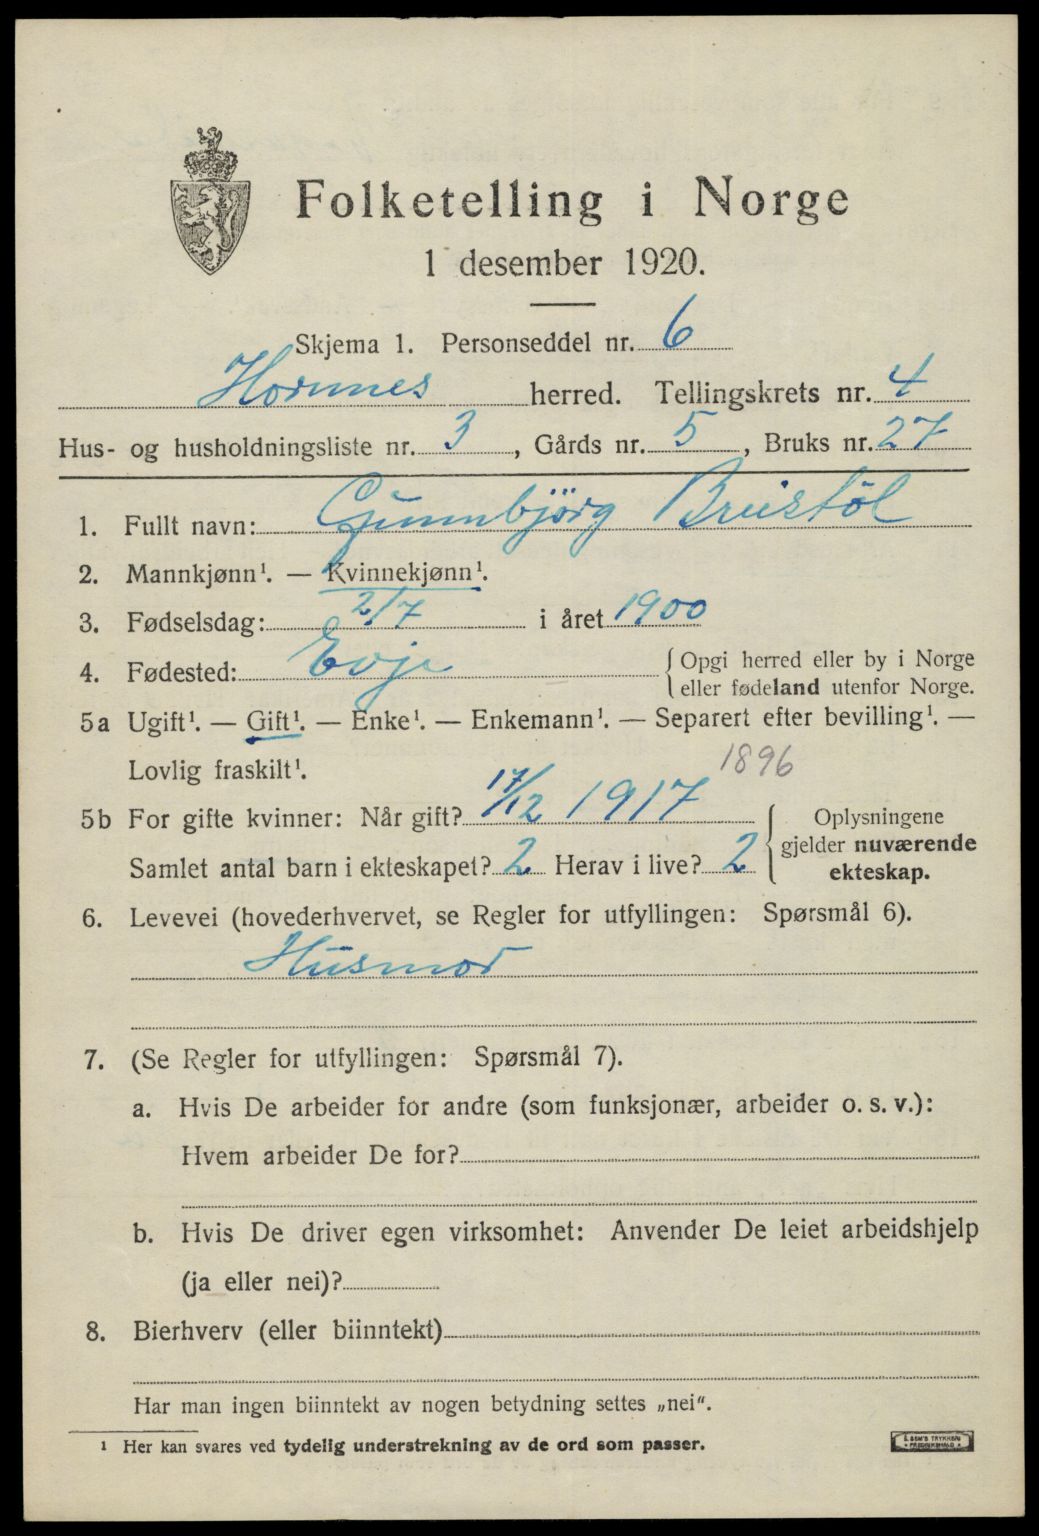 Folketelling i Norge
1 desember 1920.
Skjema 1. Personseddel nr. 6
Hornnes herred. Tellingskrets nr. 4
Hus- og husholdningsliste nr. 3, Gårds nr. 5, Bruks nr. 27
1. Fullt navn: Gunnbjörg Breistöl
2. Mannkjønn¹. — Kvinnekjønn¹.
3. Fødselsdag: 2/7 i året 1900
4. Fødested: Evje { Opgi herred eller by i Norge
eller fødeland utenfor Norge.
5a Ugift¹. — Gift¹. — Enke¹. — Enkemann¹. — Separert efter bevilling¹. —
Lovlig fraskilt¹. 1896
5b For gifte kvinner: Når gift? 17/12 1917 { Oplysningene
gjelder nuværende
Samlet antal barn i ekteskapet? 2 Herav i live? 2 ekteskap.
6. Levevei (hovederhvervet, se Regler for utfyllingen: Spørsmål 6).
Husmor
7. (Se Regler for utfyllingen: Spørsmål 7).
a. Hvis De arbeider for andre (som funksjonær, arbeider o. s. v.):
Hvem arbeider De for?
b. Hvis De driver egen virksomhet: Anvender De leiet arbeidshjelp
(ja eller nei)?
8. Bierhverv (eller biinntekt)
Har man ingen biinntekt av nogen betydning settes „nei".
¹ Her kan svares ved tydelig understrekning av de ord som passer.